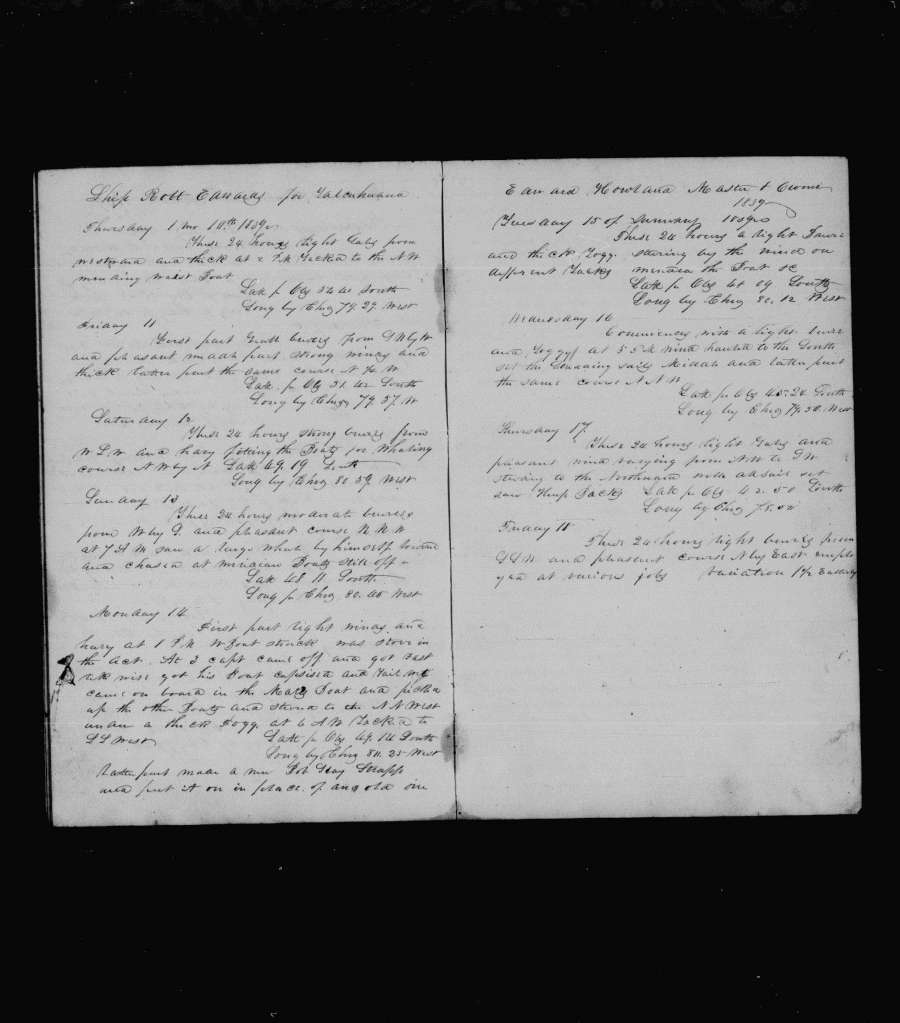 Ship Robt Edwards for Talcahuana
Thursday 1 mo 10th 1839
These 24 hours light Gales from
westward and thick at 2 P.M Tacked to the N W
mending waist Boat
Latt p Obs 52 40 South
Long by Chro 79. 29. West
Friday 11
First part Small breezes from S W by W
and pleasant middle part strong winds and
thick latter part the same course N W
Latt p Obs 51 42 South
Long by Chro 79. 57. W
Saturday 12
These 24 hours strong breezes from
W S W and hazy fitting the Boats for Whaling
course N W by N Latt 49. 19 South
Long by Chro 80 59 West
Sunday 13
These 24 hours moderate breezes
from W by S. and pleasant course N N W
at 7 A M saw a large whale by himself lowered
and chased at meridian Boats still off
Latt 48 11 South
Long p Chro 80. 46 West
Monday 14
First part light winds and
hazy at 1 P.M W Boat struck was stove in
the act. At 3 capt came off and got fast
likewise got his Boat capsized and
came on board in the Mates Boat and picked
up the other Boats and steered to the N N West
under a thick Fogg. at 6 A M Tacked to
S S West
Latt p Obs 47. 14 South
Long by Chro 80. 25 West
Latter part made a new Bob Stay
and put it on in place of an old one
Edward Howland Master & Owner
1839
Tuesday 15 of January 1839
These 24 hours a light Baurs
and thick Fogg. steering by the wind on
different Tacks mended the Boat &c
Latt p Obs 46 09 South
Long by Chro 80. 12 West
Wednesday 16
Commences with a light breeze
and Foggy at 5 P.M wind hauled to the South
set the studding sails Middle and latter part
the same course N N W
Latt p Obs 45. 24 South
Long by Chro 79. 50 West
Thursday 17
These 24 hours light Gales and
pleasant wind varying from N W to S W
steering to the Northward with all sail set
saw Hump Backs Latt p Obs 42. 50 South
Long by Chro 78.
Friday 18
These 24 hours light breezes from
S S W and pleasant course N by East employ
yed at various jobs Variation 1 1/2 Easterly